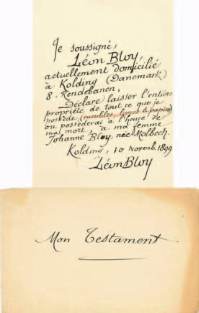 Je soussigné,
Léon Bloy,
actuellement domicilié
à Kolding (Danemark)
8. Rendebanen,
Déclare laisser l'entière
propriété de tout ce que je
possède (meubles, livres & papiers)
ou posséderai à l'heure de
ma mort à ma femme
Johanne Bloy, née Molbech.
Kolding, 10 novemb. 1899
Léon Bloy
Mon Testament